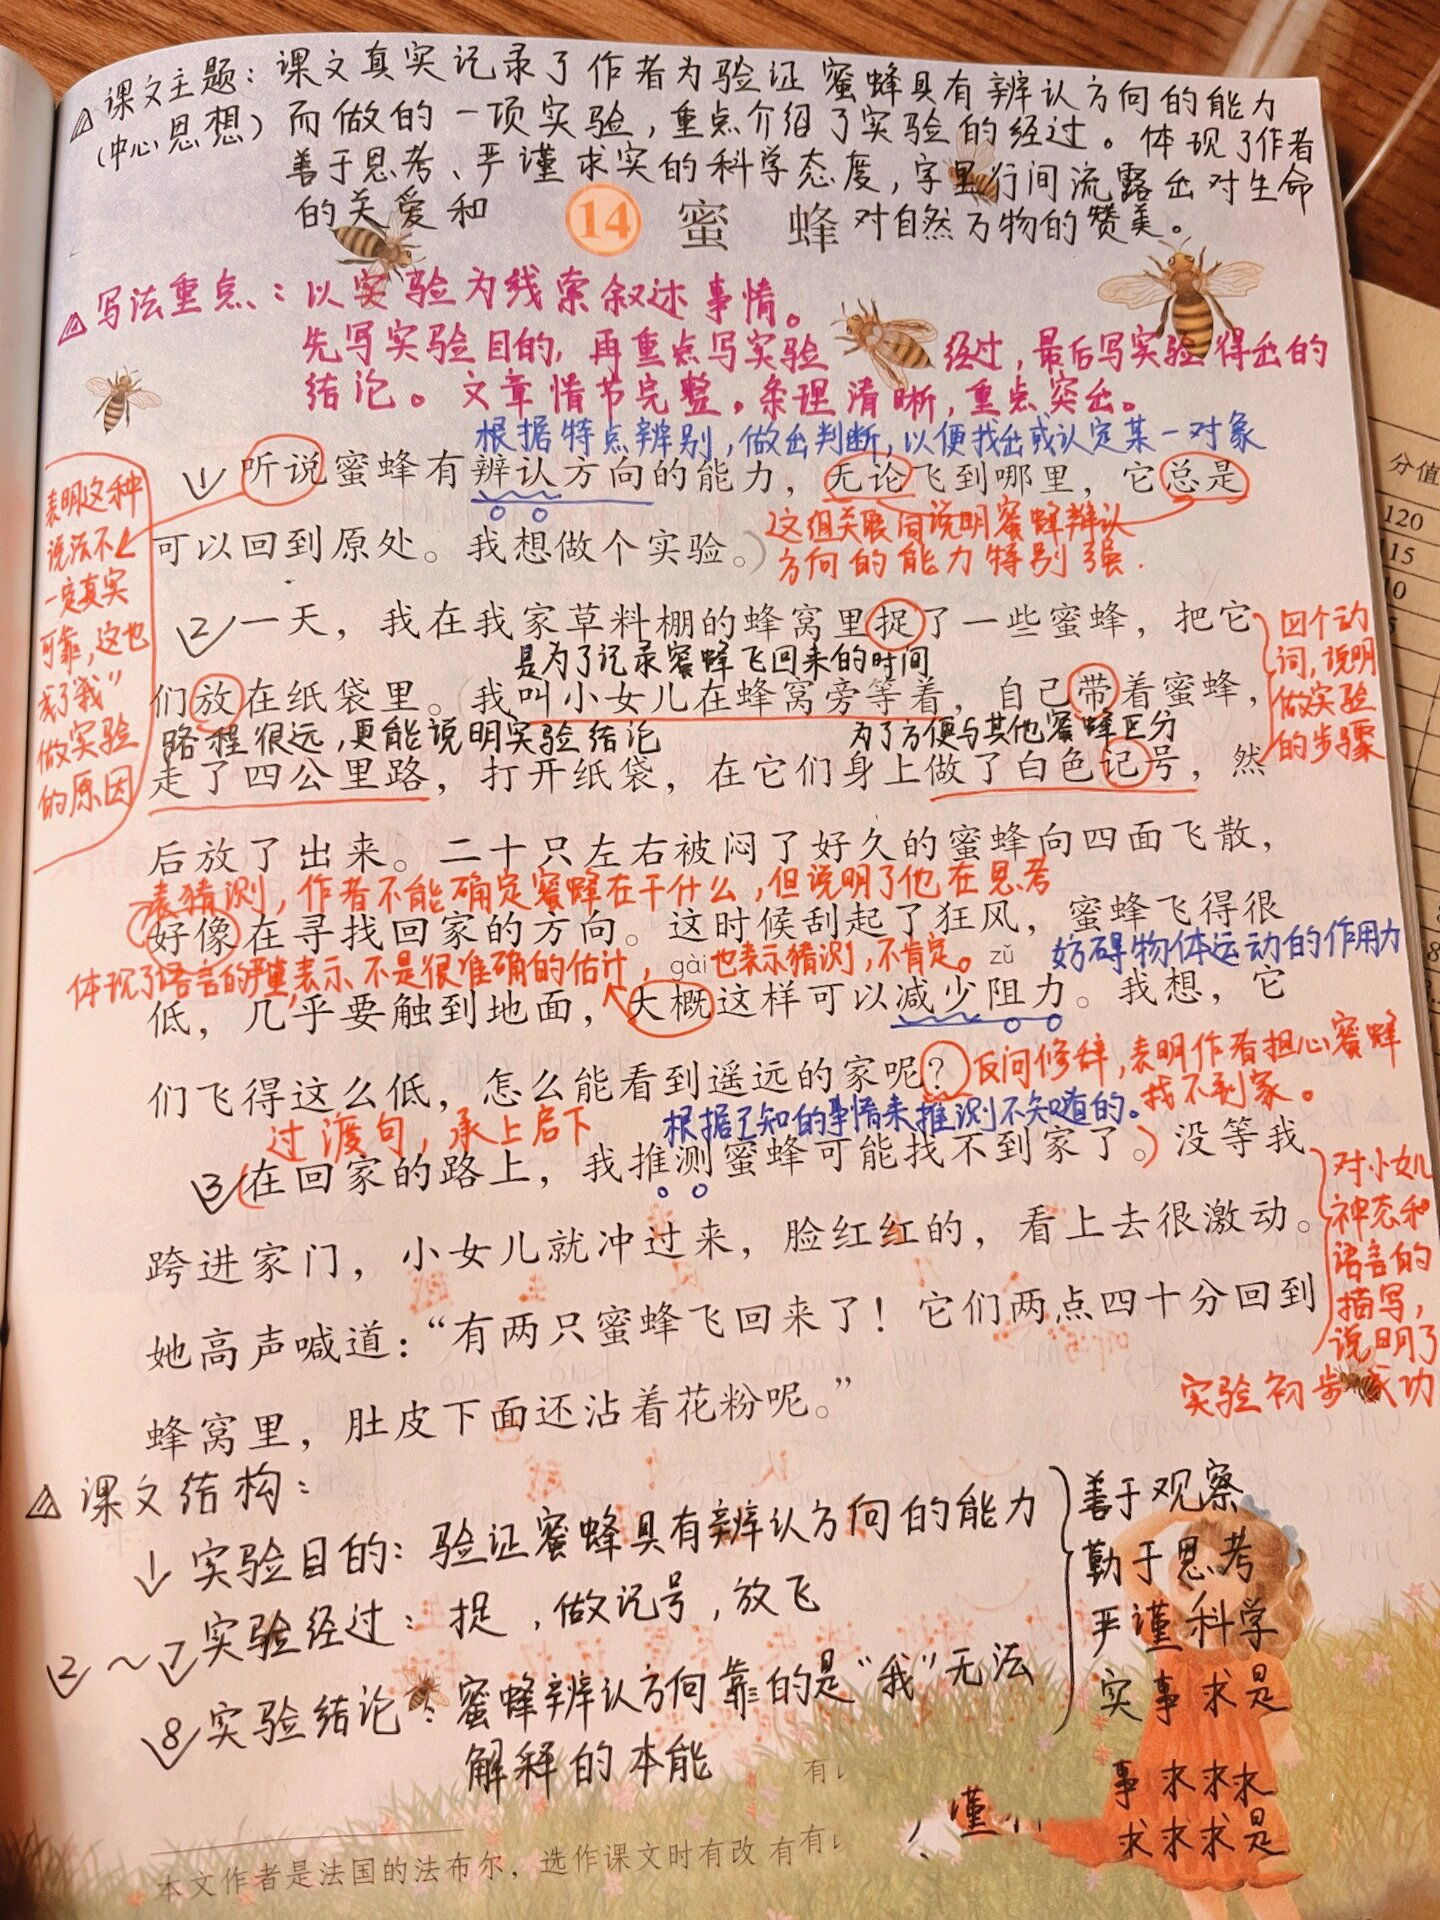 △课文主题：课文真实记录了作者为验证蜜蜂具有辨认方向的能力
（中心思想）而做的一项实验，重点介绍了实验的经过。体现了作者
善于思考、严谨求实的科学态度，字里行间流露出对生命
的关爱和
对自然万物的赞美。
14 蜜蜂
△写法重点：以实验为线索叙述事情。
先写实验目的，再重点写实验经过，最后写实验得出的
结论。文章情节完整，条理清晰，重点突出。
根据特点辨别，做出判断，以便找出或认定某一对象
1 听说蜜蜂有辨认方向的能力，无论飞到哪里，它总是
可以回到原处。我想做个实验。
这组关联词说明蜜蜂辩认
方向的能力特别强.
表明这种
说法不
一定真实
可靠，这也
成了“我”
做实验
的原因
2 一天，我在我家草料棚的蜂窝里捉了一些蜜蜂，把它
四个动
词，说明
做实验
的步骤
是为了记录蜜蜂飞回来的时间
们放在纸袋里。我叫小女儿在蜂窝旁等着，自己带着蜜蜂，
路程很远，更能说明实验结论
为了方便与其他蜜蜂区分
走了四公里路，打开纸袋，在它们身上做了白色记号，然
后放了出来。二十只左右被闷了好久的蜜蜂向四面飞散，
表猜测，作者不能确定蜜蜂在干什么，但说明了他在思考
好像在寻找回家的方向。这时候刮起了狂风，蜜蜂飞得很
体现了语言的严谨，表示不是很准确的估计，
gài
也表示猜测，不肯定。
zǔ
妨碍物体运动的作用力
低，几乎要触到地面，大概这样可以减少阻力。我想，它
们飞得这么低，怎么能看到遥远的家呢？
反问修辞，表明作者担心蜜蜂
找不到家。
过渡句，承上启下
根据已知的事情来推测不知道的。
3 在回家的路上，我推测蜜蜂可能找不到家了。没等我
跨进家门，小女儿就冲过来，脸红红的，看上去很激动。
她高声喊道：“有两只蜜蜂飞回来了！它们两点四十分回到
蜂窝里，肚皮下面还沾着花粉呢。”
对小女儿
神态和
语言的
描写，
说明了
实验初步成功
△课文结构：
1 实验目的：验证蜜蜂具有辨认方向的能力
2～7 实验经过：捉，做记号，放飞
8 实验结论：蜜蜂辨认方向靠的是“我”无法
解释的本能
善于观察
勤于思考
严谨科学
实事求是
事求求求
求求求是
谨
本文作者是法国的法布尔，选作课文时有改
有有
分值
120
115